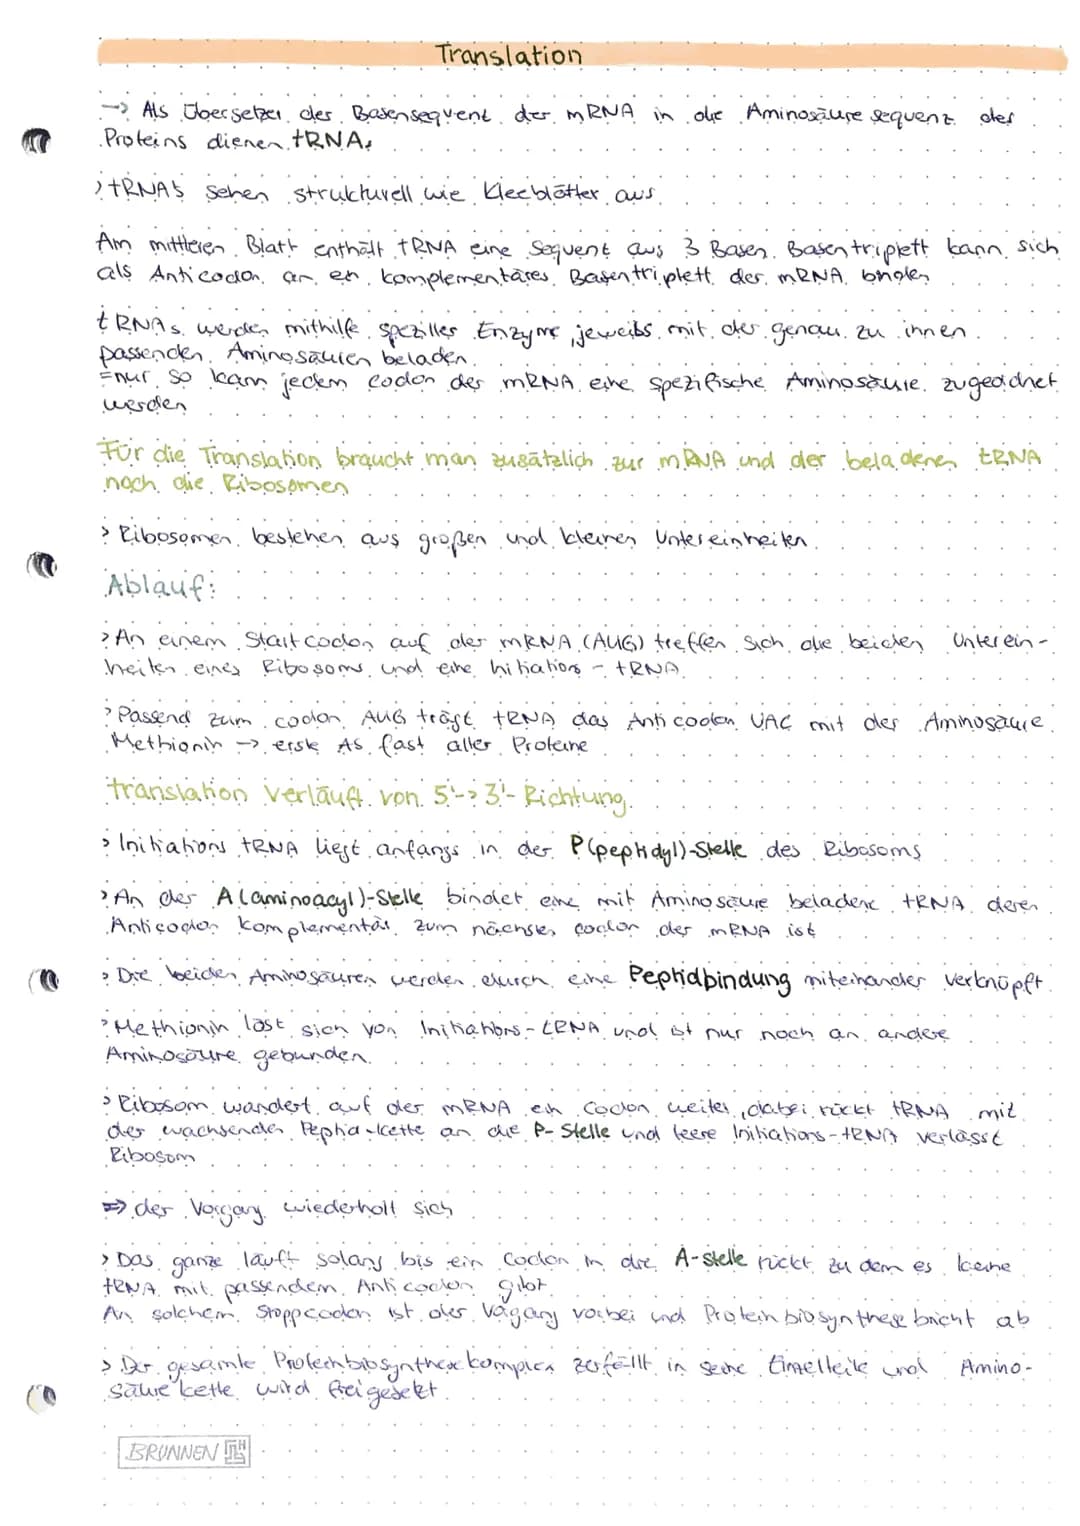 Translation
-> Als Übersetzer der Basensequent der mRNA in die Aminosäure sequenz des
Proteins dienen tRNA.
> tRNA's sehen strukturell wie Kleeblätter aus.
Am mittleren Blatt enthält tRNA eine Sequent aus 3 Basen. Basentriplett kann sich
als Anticodon an en komplementäres Basentriplett der mRNA binden
tRNAs werden mithilfe speziller Enzyme, jeweils mit der genau zu ihnen
passenden Aminosäuren beladen.
=nur so kann jedem Codon der mRNA eine spezifische Aminosäure zugeordnet
werden
Für die Translation braucht man zusätzlich zur mRNA und der beladenen tRNA
noch die Ribosomen
> Ribosomen bestehen aus großen und kleinen Untereinheiten.
Ablauf:
> An einem Startcodon auf der mRNA (AUG) treffen sich die beiden Unterein-
heiten eines Ribosoms und eine Initiation - tRNA
> Passend zum codon AUG trägt tRNA das Anticodon UAC mit der Aminosäure
Methionin -> erste As fast aller Proteine
translation verläuft von 5'-> 3'- Richtung.
> Initiations tRNA liegt anfangs in der P(peptidyl)-Stelle des Ribosoms
> An der A(aminoacyl)-Stelle bindet eine mit Aminosäure beladene tRNA deren
Anticodon komplementär zum nächsten codon der mRNA ist
> Die beiden Aminosäuren werden durch eine Peptidbindung miteinander verknüpft.
> Methionin löst sich von Initiations-tRNA und ist nur noch an andere
Aminosäure gebunden.
> Ribosom wandert auf der mRNA ein Codon weiter, dabei rückt tRNA mit
der wachsenden Peptid-kette an die P- Stelle und leere Initiations-tRNA verlässt
Ribosom
=> der Vorgang wiederholt sich
> Das ganze läuft solang bis ein Codon in die A-stelle rückt zu dem es keine
tRNA mit passendem Anticodon gibt.
An solchem Stoppcodon ist der Vorgang vorbei und Proteinbiosynthese bricht ab
> Der gesamte Proteinbiosynthese komplex zerfällt in seine Einzelteile und Amino-
säure kette wird freigesetzt.
BRUNNEN